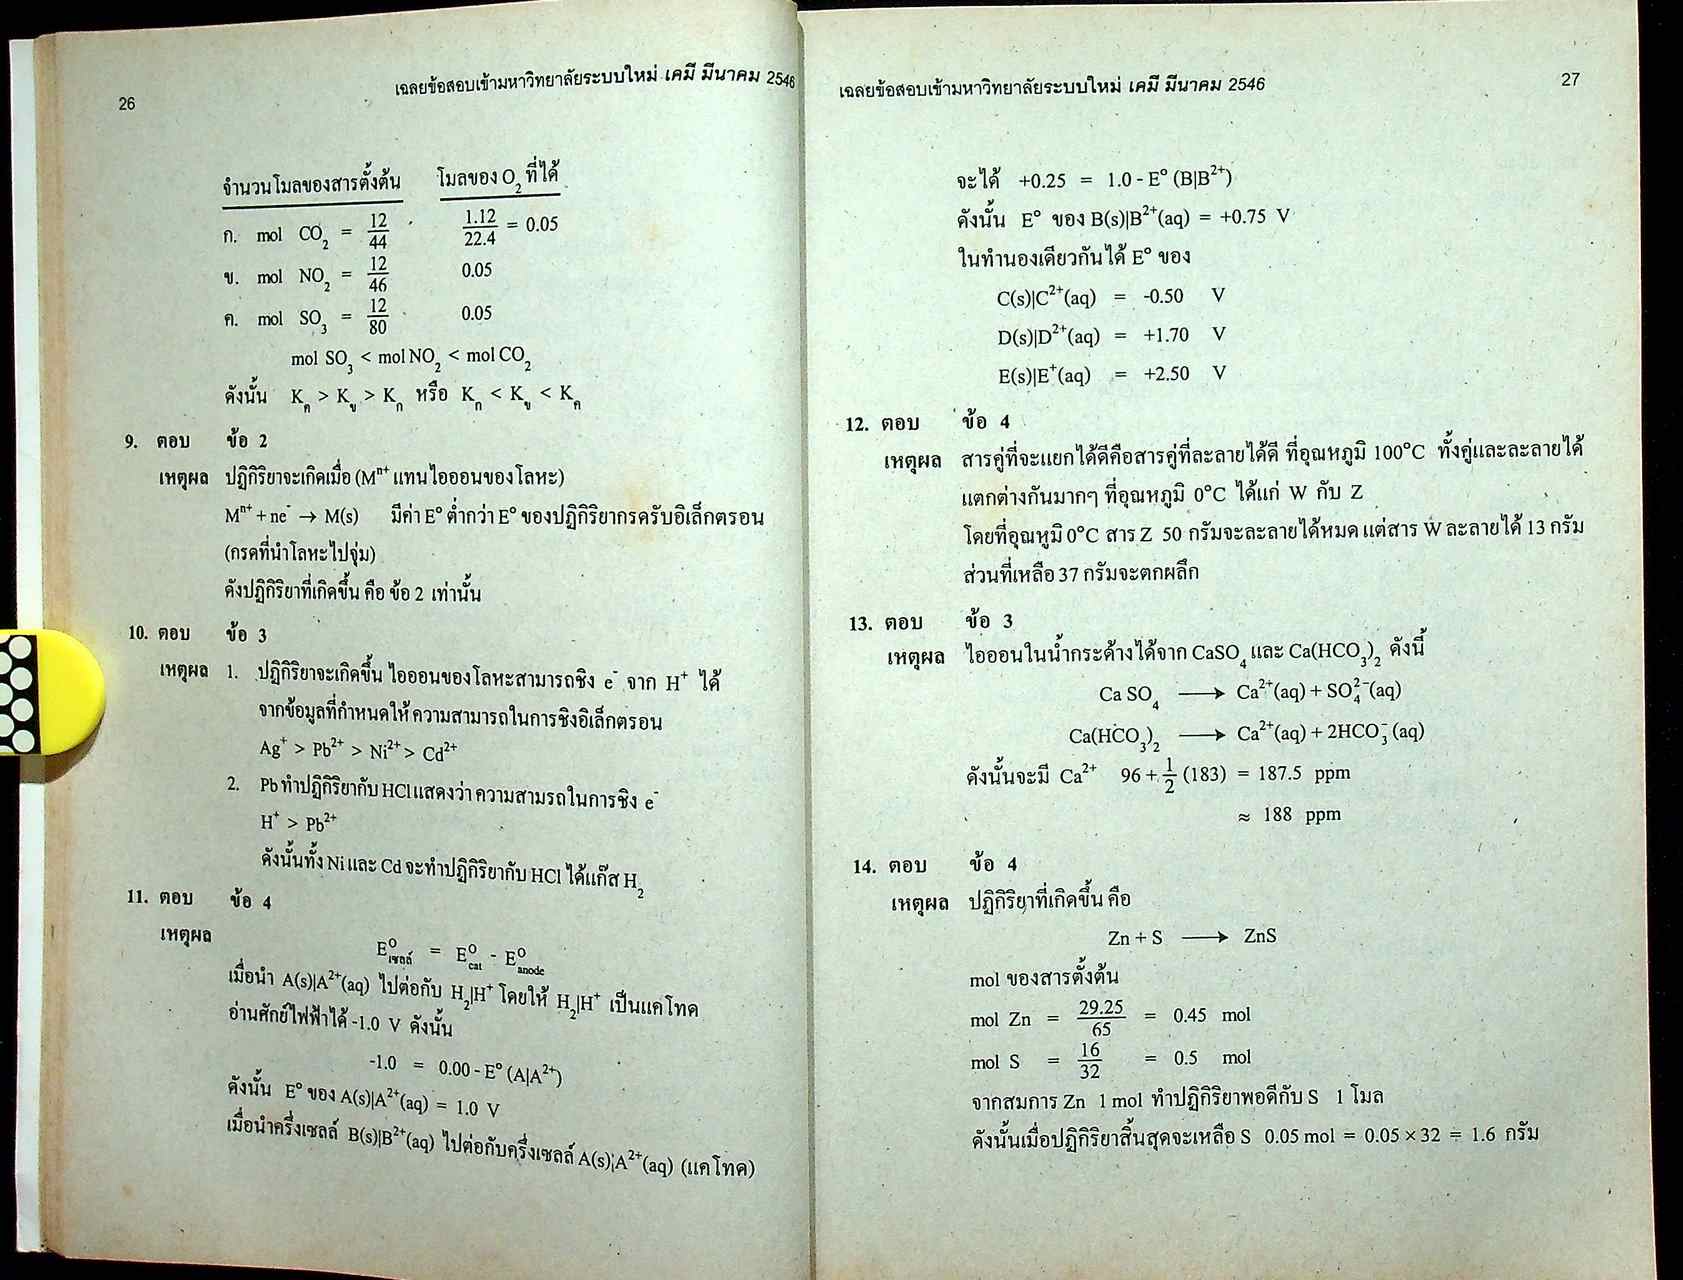 26
เฉลยข้อสอบเข้ามหาวิทยาลัยระบบใหม่ เคมี มีนาคม 2546
จำนวนโมลของสารตั้งต้น โมลของ O₂ ที่ได้
ก. mol CO₂ = 12/44 1.12/22.4 = 0.05
ข. mol NO₂ = 12/46 0.05
ค. mol SO₃ = 12/80 0.05
mol SO₃ < mol NO₂ < mol CO₂
ดังนั้น Kค > Kข > Kก หรือ Kก < Kข < Kค
9. ตอบ ข้อ 2
เหตุผล ปฏิกิริยาจะเกิดเมื่อ (Mⁿ⁺ แทนไอออนของโลหะ)
Mⁿ⁺ + ne⁻ → M(s) มีค่า E° ต่ำกว่า E° ของปฏิกิริยากรดรับอิเล็กตรอน
(กรดที่นำโลหะไปจุ่ม)
ดังปฏิกิริยาที่เกิดขึ้น คือ ข้อ 2 เท่านั้น
10. ตอบ ข้อ 3
เหตุผล 1. ปฏิกิริยาจะเกิดขึ้น ไอออนของโลหะสามารถชิง e⁻ จาก H⁺ ได้
จากข้อมูลที่กำหนดให้ ความสามารถในการชิงอิเล็กตรอน
Ag⁺ > Pb²⁺ > Ni²⁺ > Cd²⁺
2. Pb ทำปฏิกิริยากับ HCl แสดงว่า ความสามรถในการชิง e⁻
H⁺ > Pb²⁺
ดังนั้นทั้ง Ni และ Cd จะทำปฏิกิริยากับ HCl ได้แก๊ส H₂
11. ตอบ ข้อ 4
เหตุผล
E°เซลล์ = E°cat - E°anode
เมื่อนำ A(s)|A²⁺(aq) ไปต่อกับ H₂|H⁺ โดยให้ H₂|H⁺ เป็นแคโทด
อ่านศักย์ไฟฟ้าได้ -1.0 V ดังนั้น
-1.0 = 0.00 - E° (A|A²⁺)
ดังนั้น E° ของ A(s)|A²⁺(aq) = 1.0 V
เมื่อนำครึ่งเซลล์ B(s)|B²⁺(aq) ไปต่อกับครึ่งเซลล์ A(s)|A²⁺(aq) (แคโทด)
เฉลยข้อสอบเข้ามหาวิทยาลัยระบบใหม่ เคมี มีนาคม 2546
27
จะได้ +0.25 = 1.0 - E° (B|B²⁺)
ดังนั้น E° ของ B(s)|B²⁺(aq) = +0.75 V
ในทำนองเดียวกันได้ E° ของ
C(s)|C²⁺(aq) = -0.50 V
D(s)|D²⁺(aq) = +1.70 V
E(s)|E⁺(aq) = +2.50 V
12. ตอบ ข้อ 4
เหตุผล สารคู่ที่จะแยกได้ดีคือสารคู่ที่ละลายได้ดี ที่อุณหภูมิ 100°C ทั้งคู่และละลายได้
แตกต่างกันมากๆ ที่อุณหภูมิ 0°C ได้แก่ W กับ Z
โดยที่อุณหูมิ 0°C สาร Z 50 กรัมจะละลายได้หมด แต่สาร W ละลายได้ 13 กรัม
ส่วนที่เหลือ 37 กรัมจะตกผลึก
13. ตอบ ข้อ 3
เหตุผล ไอออนในน้ำกระด้างได้จาก CaSO₄ และ Ca(HCO₃)₂ ดังนี้
Ca SO₄ ⟶ Ca²⁺(aq) + SO₄²⁻(aq)
Ca(HCO₃)₂ ⟶ Ca²⁺(aq) + 2HCO₃⁻(aq)
ดังนั้นจะมี Ca²⁺ 96 + 1/2 (183) = 187.5 ppm
≈ 188 ppm
14. ตอบ ข้อ 4
เหตุผล ปฏิกิริยาที่เกิดขึ้น คือ
Zn + S ⟶ ZnS
mol ของสารตั้งต้น
mol Zn = 29.25/65 = 0.45 mol
mol S = 16/32 = 0.5 mol
จากสมการ Zn 1 mol ทำปฏิกิริยาพอดีกับ S 1 โมล
ดังนั้นเมื่อปฏิกิริยาสิ้นสุดจะเหลือ S 0.05 mol = 0.05 × 32 = 1.6 กรัม